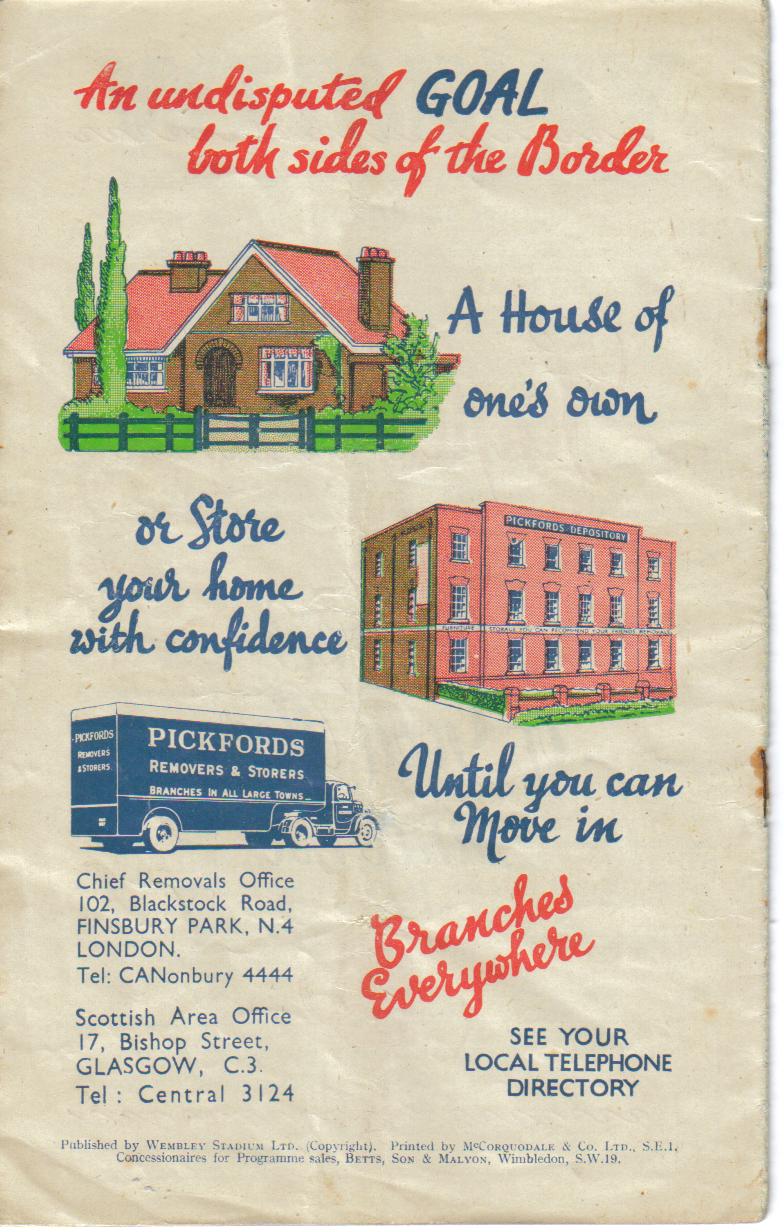 An undisputed GOAL
both sides of the Border
A House of
one's own
or Store
your home
with confidence
PICKFORDS DEPOSITORY
FURNITURE STORAGE YOU CAN RECOMMEND YOUR FRIENDS
PICKFORDS
REMOVERS
& STORERS
PICKFORDS
REMOVERS & STORERS
BRANCHES IN ALL LARGE TOWNS
Until you can
Move in
Chief Removals Office
102, Blackstock Road,
FINSBURY PARK, N.4
LONDON.
Tel: CANonbury 4444
Branches
Everywhere
Scottish Area Office
17, Bishop Street,
GLASGOW, C.3.
Tel: Central 3124
SEE YOUR
LOCAL TELEPHONE
DIRECTORY
Published by WEMBLEY STADIUM LTD. (Copyright). Printed by McCORQUODALE & CO. LTD., S.E.1.
Concessionaires for Programme sales, BETTS, SON & MALYON, Wimbledon, S.W.19.